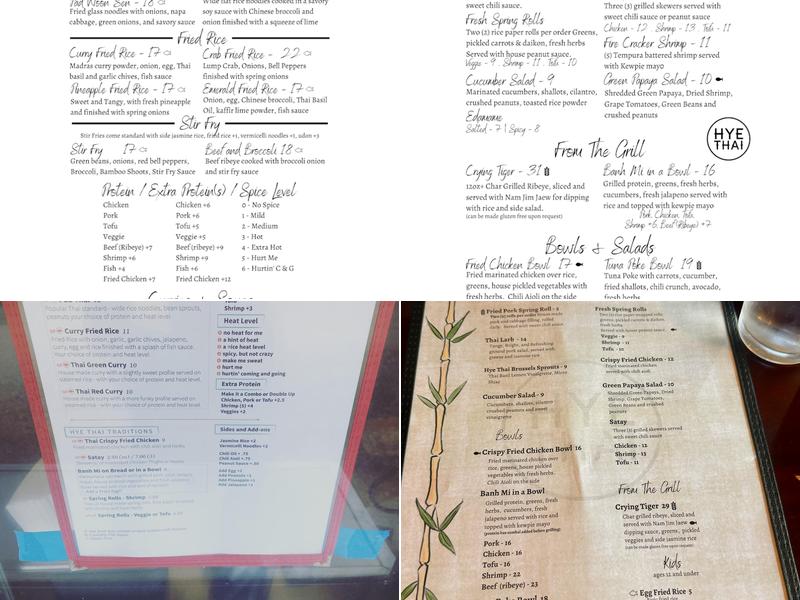 Pad Woon Sen - 18
Fried glass noodles with onions, napa
cabbage, green onions, and savory sauce
Wide flat rice noodles cooked in a savory
soy sauce with Chinese broccoli and
onion finished with a squeeze of lime
Fried Rice
Curry Fried Rice - 17
Madras curry powder, onion, egg, Thai
basil and garlic chives, fish sauce
Crab Fried Rice - 22
Lump Crab, Onions, Bell Peppers
finished with spring onions
Pineapple Fried Rice - 17
Sweet and Tangy, with fresh pineapple
and finished with spring onions
Emerald Fried Rice - 17
Onion, egg, Chinese broccoli, Thai Basil
Oil, kaffir lime powder, fish sauce
Stir Fry
Stir Fries come standard with side jasmine rice, fried rice +1, vermicelli noodles +1, udon +3
Stir Fry 17
Green beans, onions, red bell peppers,
Broccoli, Bamboo Shoots, Stir Fry Sauce
Beef and Broccoli 18
Beef ribeye cooked with broccoli onion
and stir fry sauce
Protein / Extra Protein(s) / Spice Level
Chicken Chicken +6 0 - No Spice
Pork Pork +6 1 - Mild
Tofu +5 Tofu +5 2 - Medium
Veggie Veggie +5 3 - Hot
Beef (Ribeye) +7 Beef (Ribeye) +9 4 - Extra Hot
Shrimp +6 Shrimp +9 5 - Hurt Me
Fish +4 Fish +6 6 - Hurtin' C & G
Fried Chicken +7 Fried Chicken +12
sweet chili sauce.
Fresh Spring Rolls
Two (2) rice paper rolls per order Greens,
pickled carrots & daikon, fresh herbs
Served with house peanut sauce.
Veggie - 9 . Shrimp - 11 . Tofu - 10
Cucumber Salad - 9
Marinated cucumbers, shallots, cilantro,
crushed peanuts, toasted rice powder
Edamame
Salted - 7 | Spicy - 8
Three (3) grilled skewers served with
sweet chili sauce or peanut sauce
Chicken - 12 . Shrimp - 13 . Tofu - 11
Fire Cracker Shrimp - 11
(5) Tempura battered shrimp served
with Kewpie mayo
Green Papaya Salad - 10
Shredded Green Papaya, Dried Shrimp,
Grape Tomatoes, Green Beans and
crushed peanuts
HYE
THAI
From The Grill
Crying Tiger - 31
12oz+ Char Grilled Ribeye, sliced and
served with Nam Jim Jaew for dipping
with rice and side salad.
(can be made gluten free upon request)
Banh Mi in a Bowl - 16
Grilled protein, greens, fresh herbs,
cucumbers, fresh jalapeno served with
rice and topped with kewpie mayo
Pork, Chicken, Tofu
Shrimp +6, Beef (Ribeye) +7
Bowls & Salads
Fried Chicken Bowl 17
Fried marinated chicken over rice,
greens, house pickled vegetables with
fresh herbs. Chili Aioli on the side
Tuna Poke Bowl 19
Tuna Poke with carrots, cucumber,
fried shallots, chili crunch, avocado,
fresh herbs
Popular Thai standard - wide rice noodles, bean sprouts,
peanuts your choice of protein and heat level
Curry Fried Rice 11
Fried Rice with onion, garlic, garlic chives, jalapeno,
curry, egg and rice finished with a splash of fish sauce.
Your choice of protein and heat level.
Thai Green Curry 10
House made curry with a slightly sweet profile served on
steamed rice - with your choice of protein and heat level.
Thai Red Curry 10
House made curry with a more funky profile served on
steamed rice - with your choice of protein and heat level.
HYE THAI TRADITIONS
Thai Crispy Fried Chicken 9
Satay
Banh Mi on Bread or in a Bowl
Spring Rolls - Shrimp
Spring Rolls - Veggie or Tofu
Shrimp +3
Heat Level
no heat for me
a hint of heat
a nice heat level
spicy, but not crazy
make me sweat
hurt me
hurtin' coming and going
Extra Protein
Make it a Combo or Double Up
Chicken, Pork or Tofu +2.5
Shrimp (5) +4
Veggies +2
Sides and Add-ons
Jasmine Rice +2
Vermicelli Noodles +2
Chili Oil + .75
Chili Aioli + .75
Peanut Sauce + .50
Add Egg +2
Add Peanuts +1
Add Pineapple +1
Add Jalapeno +1
Fried Pork Spring Roll - 2
Thai Larb - 14
Tangy, Bright, and Refreshing
ground pork salad, served with
greens and jasmine rice
Hye Thai Brussels Sprouts - 9
Cucumber Salad - 9
Cucumbers, shallots, cilantro
crushed peanuts and sweet
vinaigrette
Bowls
Crispy Fried Chicken Bowl 16
Fried marinated chicken over
rice, greens, house pickled
vegetables with fresh herbs.
Chili Aioli on the side
Banh Mi in a Bowl
Grilled protein, greens, fresh
herbs, cucumbers, fresh
jalapeno served with rice and
topped with kewpie mayo
Pork - 16
Chicken - 16
Tofu - 16
Shrimp - 22
Beef (ribeye) - 23
Fresh Spring Rolls
Veggie - 9
Shrimp - 11
Tofu - 10
Crispy Fried Chicken - 12
Fried marinated chicken
served with chili aioli.
Green Papaya Salad - 10
Shredded Green Papaya, Dried
Shrimp, Grape Tomatoes,
Green Beans and crushed
peanuts
Satay
Three (3) grilled skewers served
with sweet chili sauce
Chicken - 12
Shrimp - 13
Tofu - 11
From The Grill
Crying Tiger 29
Char grilled ribeye, sliced and
served with Nam Jim Jaew
dipping sauce, greens, pickled
veggies and side jasmine rice
(can be made gluten free upon request)
Kids
ages 12 and under
Egg Fried Rice 5